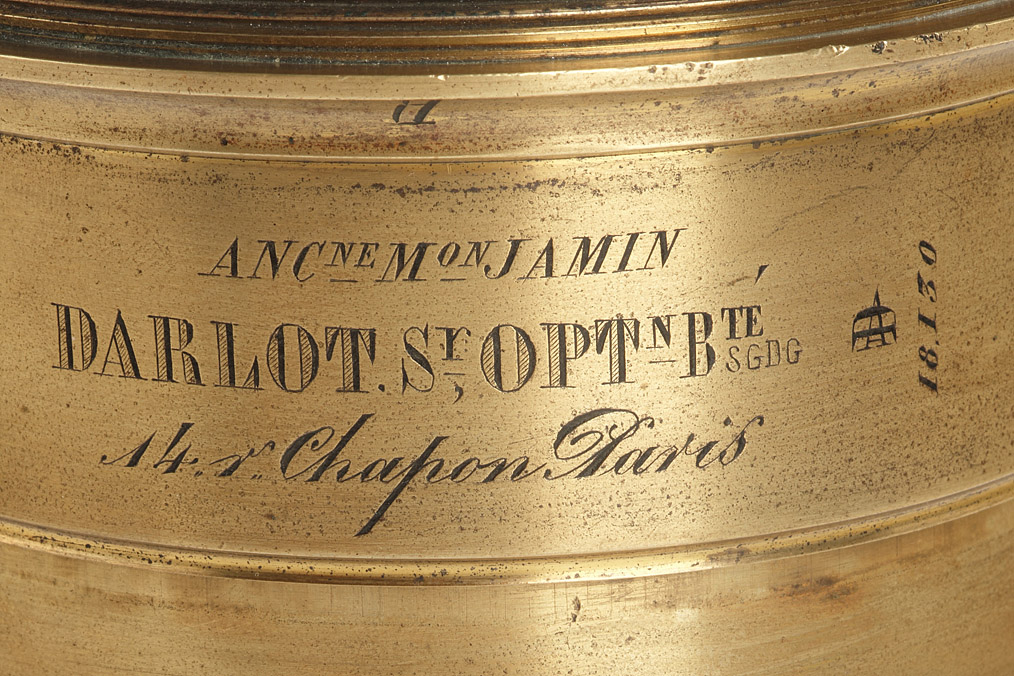 ANCNE MON JAMIN
DARLOT. Sr, OPTN BTÉ SGDG
14. r. Chapon Paris
AD
18.130